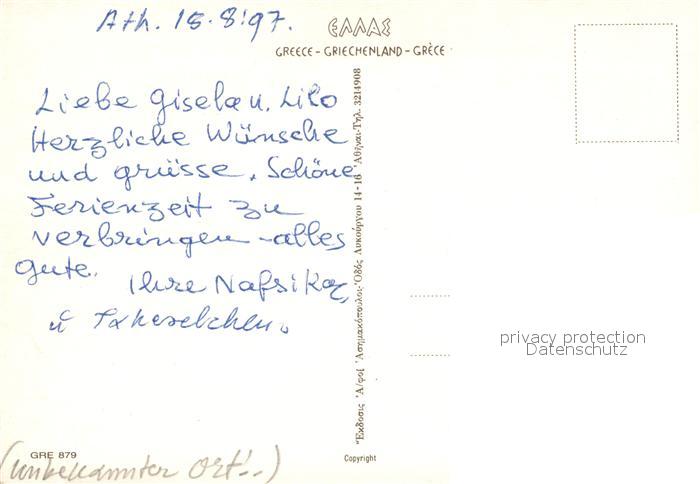 Ath. 15.8.'97.
ΕΛΛΑΣ
GREECE - GRIECHENLAND - GRÈCE
Liebe Gisela u. Lilo
Herzliche Wünsche
und grüsse. Schöne
Ferienzeit zu
verbringen - alles
gute.
Ihre Nafsika
u
Ἔκδοσις Ἀ/φοὶ Ἀσημακόπουλοι: Ὁδὸς Λυκούργου 14-16 Ἀθῆναι-Τηλ. 3214908
privacy protection
Datenschutz
GRE 879
(unbekannter Ort...)
Copyright